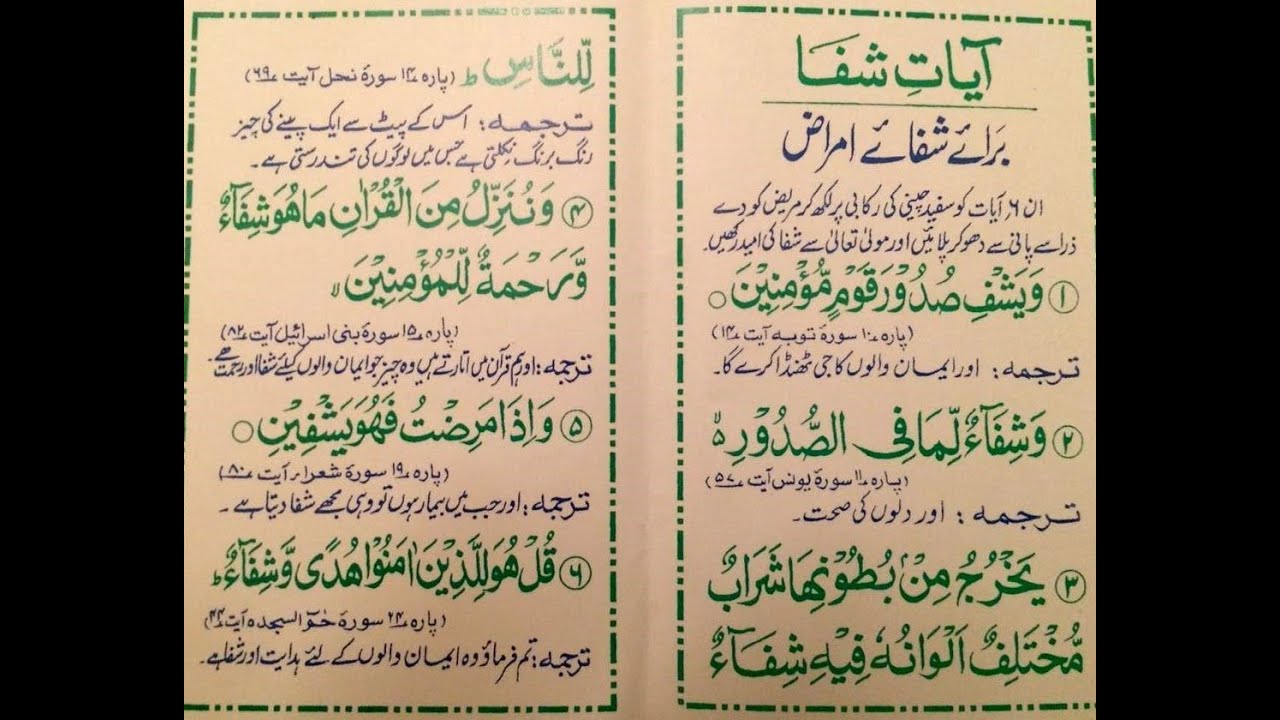 آیاتِ شفا
برائے شفائے امراض
ان ۶ آیات کو سفید چینی کی رکابی پر لکھ کر مریض کو دے
ذرا سے پانی سے دھو کر پلائیں اور مولیٰ تعالیٰ سے شفا کی امید رکھیں۔
۱ وَيَشْفِ صُدُوْرَ قَوْمٍ مُّؤْمِنِيْنَ ○
(پارہ ۱۰ سورۃ توبہ آیت ۱۴)
ترجمہ: اور ایمان والوں کا جی ٹھنڈا کرے گا۔
۲ وَشِفَآءٌ لِّمَا فِى الصُّدُوْرِ ۙ۵
(پارہ ۱۱ سورۃ یونس آیت ۵۷)
ترجمہ: اور دلوں کی صحت۔
۳ يَخْرُجُ مِنْۢ بُطُوْنِهَا شَرَابٌ
مُّخْتَلِفٌ اَلْوَانُهٗ فِيْهِ شِفَآءٌ
لِّلنَّاسِ ؕ (پارہ ۱۴ سورۃ نحل آیت ۶۹)
ترجمہ: اس کے پیٹ سے ایک پینے کی چیز
رنگ برنگ نکلتی ہے جس میں لوگوں کی تندرستی ہے۔
۴ وَنُنَزِّلُ مِنَ الْقُرْاٰنِ مَا هُوَ شِفَآءٌ
وَّرَحْمَةٌ لِّلْمُؤْمِنِيْنَ ۙ
(پارہ ۱۵ سورۃ بنی اسرائیل آیت ۸۲)
ترجمہ: اور ہم قرآن میں اتارتے ہیں وہ چیز جو ایمان والوں کیلئے شفا اور رحمت ہے۔
۵ وَاِذَا مَرِضْتُ فَهُوَ يَشْفِيْنِ ○
(پارہ ۱۹ سورۃ شعراء آیت ۸۰)
ترجمہ: اور جب میں بیمار ہوں تو وہی مجھے شفا دیتا ہے۔
۶ قُلْ هُوَ لِلَّذِيْنَ اٰمَنُوْا هُدًى وَّشِفَآءٌ ؕ
(پارہ ۲۴ سورۃ حٰمٓ السجدہ آیت ۴۴)
ترجمہ: تم فرماؤ وہ ایمان والوں کے لئے ہدایت اور شفا ہے۔